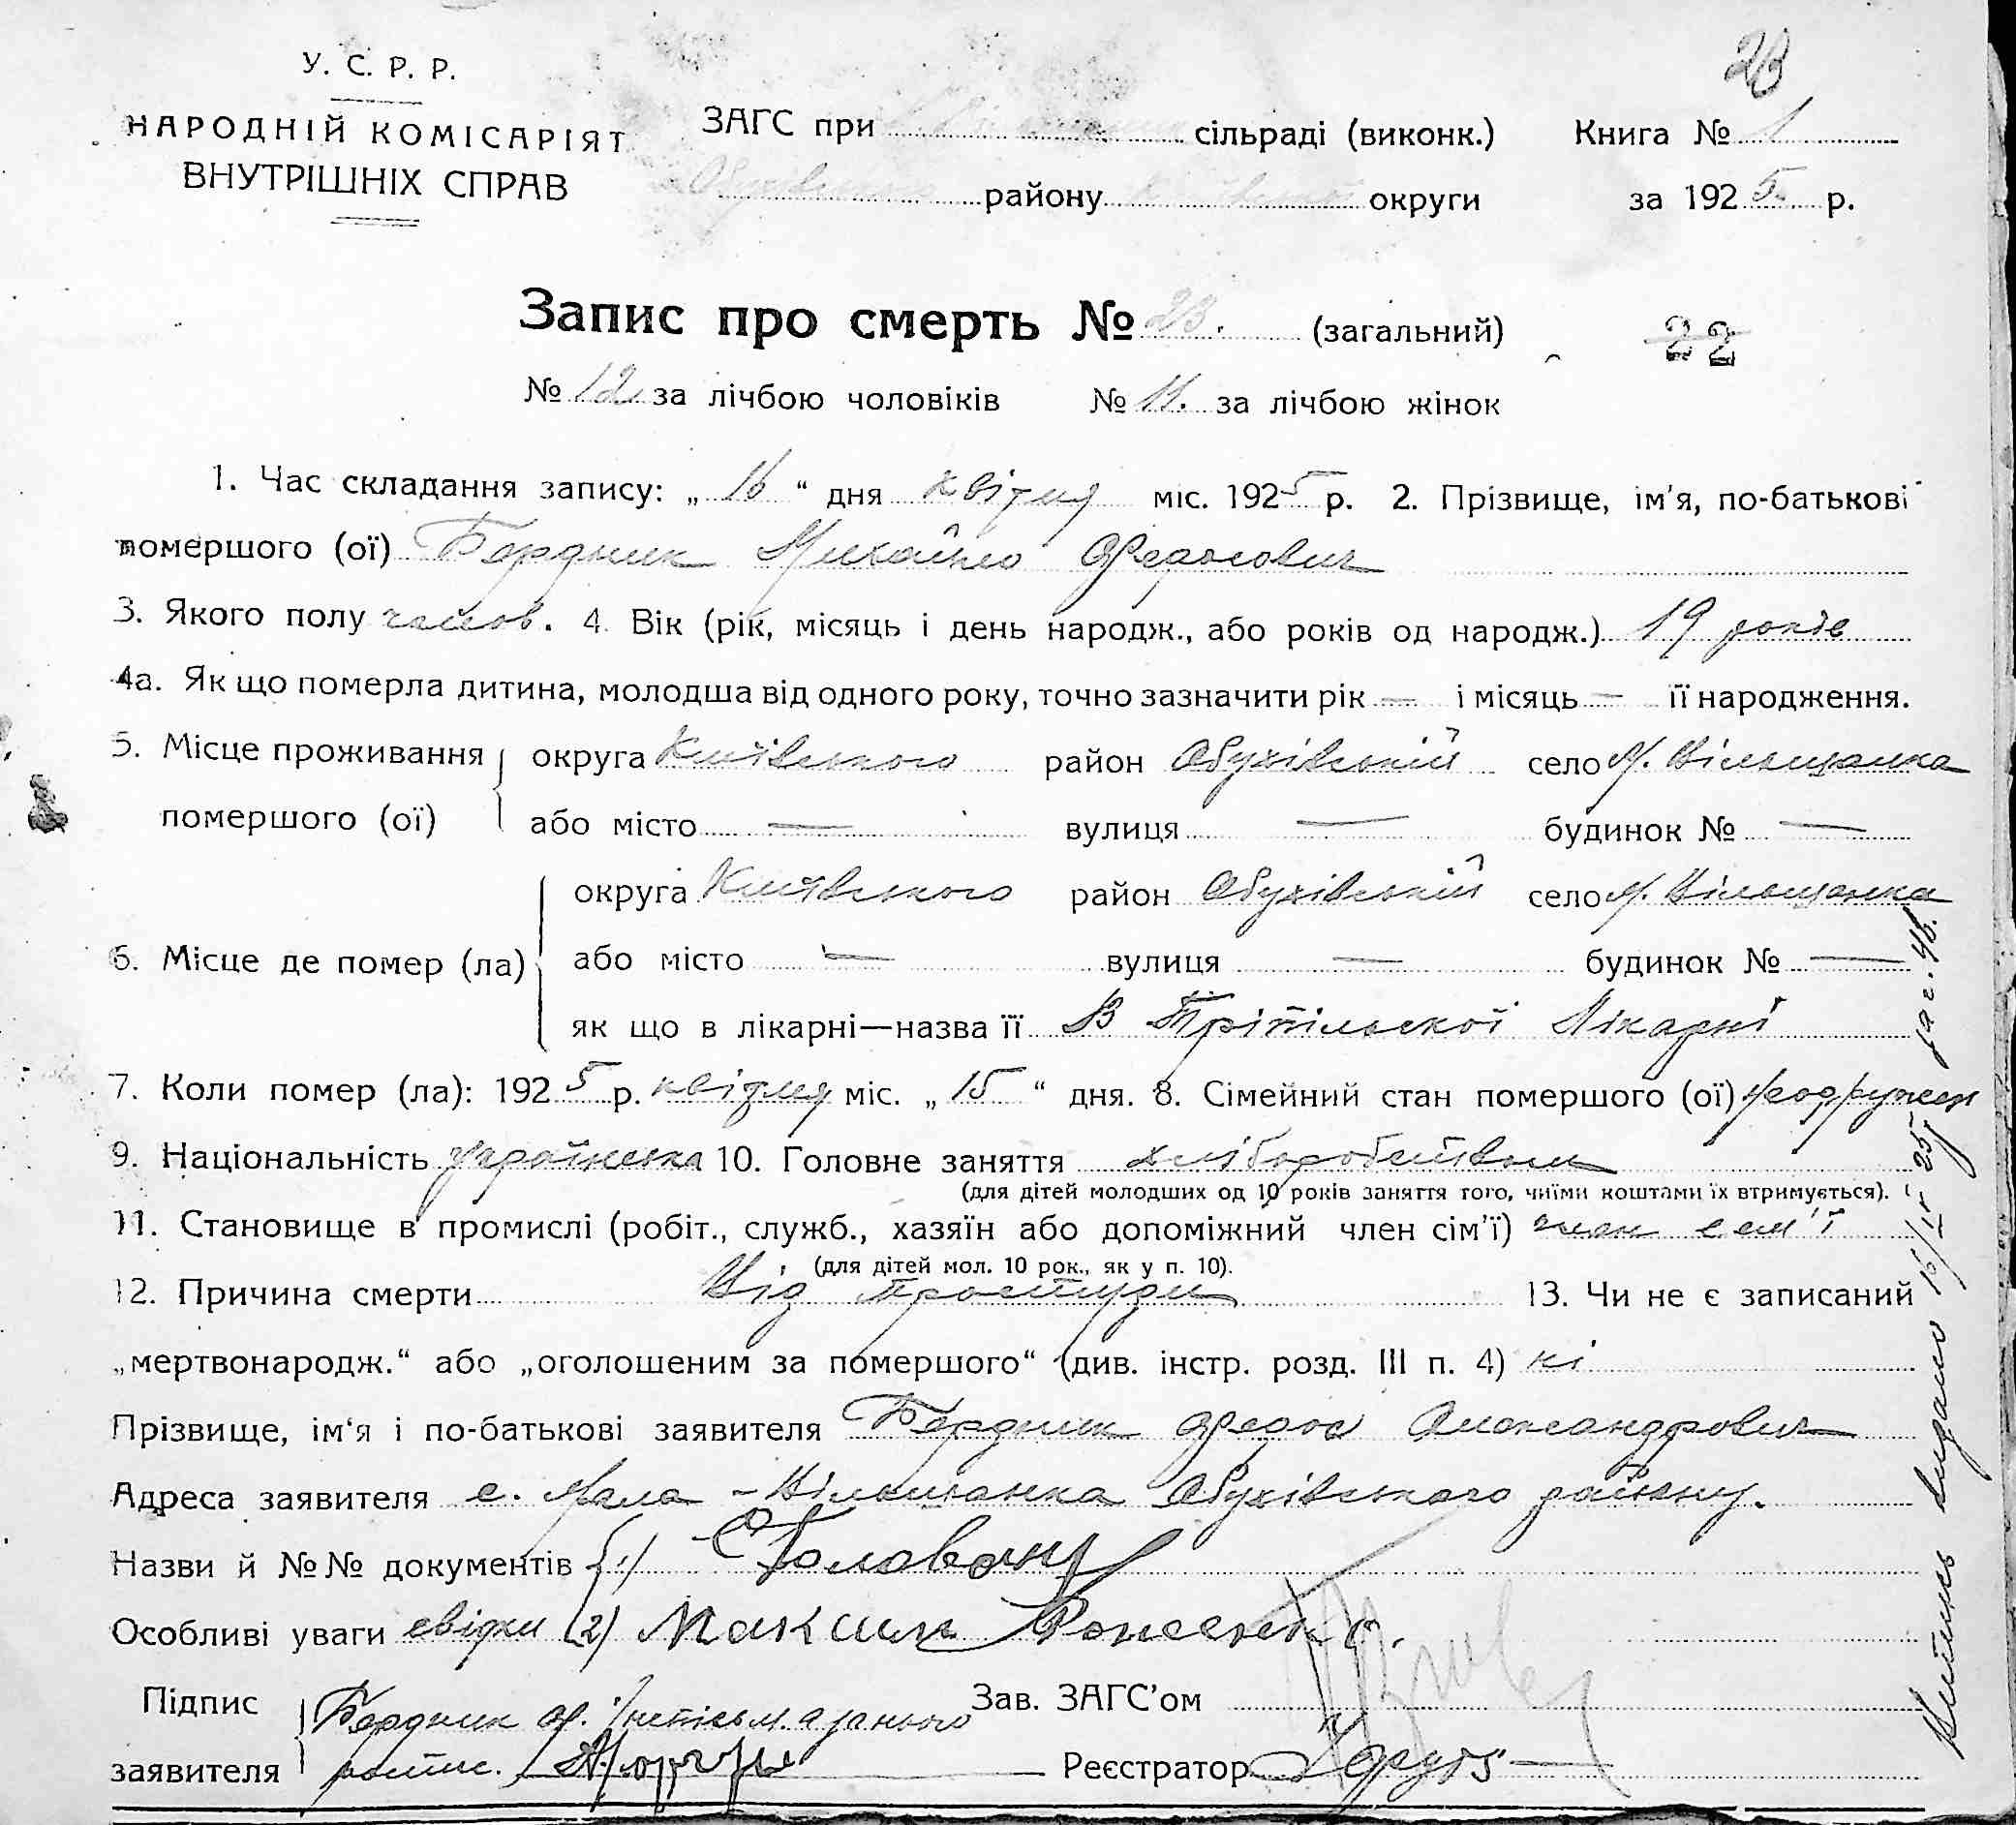 23
У. С. Р. Р.
НАРОДНІЙ КОМІСАРІЯТ
ВНУТРІШНІХ СПРАВ
ЗАГС при сільраді (виконк.) Книга № 1
Обухівського району Київської округи за 1925 р.
Запис про смерть № 23. (загальний)
22
№ 12 за лічбою чоловіків № 11. за лічбою жінок
1. Час складання запису: „ 16 “ дня квітня міс. 1925 р. 2. Прізвище, ім'я, по-батькові
помершого (ої) Бердник Михайло Федосович
3. Якого полу чолов. 4. Вік (рік, місяць і день народж., або років од народж.) 19 років
4а. Як що померла дитина, молодша від одного року, точно зазначити рік — і місяць — її народження.
5. Місце проживання помершого (ої) округа Київського район Обухівській село М. Вільшанка
або місто — вулиця — будинок № —
6. Місце де помер (ла) округа Київського район Обухівській село М. Вільшанка
або місто — вулиця — будинок № —
як що в лікарні—назва її В Тріпільскої Лікарні
7. Коли помер (ла): 1925 р. квітня міс. „ 15 “ дня. 8. Сімейний стан помершого (ої)
9. Національність українська 10. Головне заняття хліборобством
(для дітей молодших од 10 років заняття того, чиїми коштами їх втримується).
11. Становище в промислі (робіт., служб., хазяїн або допоміжний член сім'ї) член сем'ї
(для дітей мол. 10 рок., як у п. 10).
12. Причина смерти Від простуди 13. Чи не є записаний
„мертвонародж.“ або „оголошеним за помершого“ (див. інстр. розд. III п. 4) ні
Прізвище, ім'я і по-батькові заявителя Бердник Федос Олександрович
Адреса заявителя с. Мала - Вільшанка Обухівського району.
Назви й №№ документів 1)
Особливі уваги свідки 2) Максим
Підпис заявителя Бердник Ф.
Зав. ЗАГС'ом
Реєстратор
Витись видано 16/IV 25 р